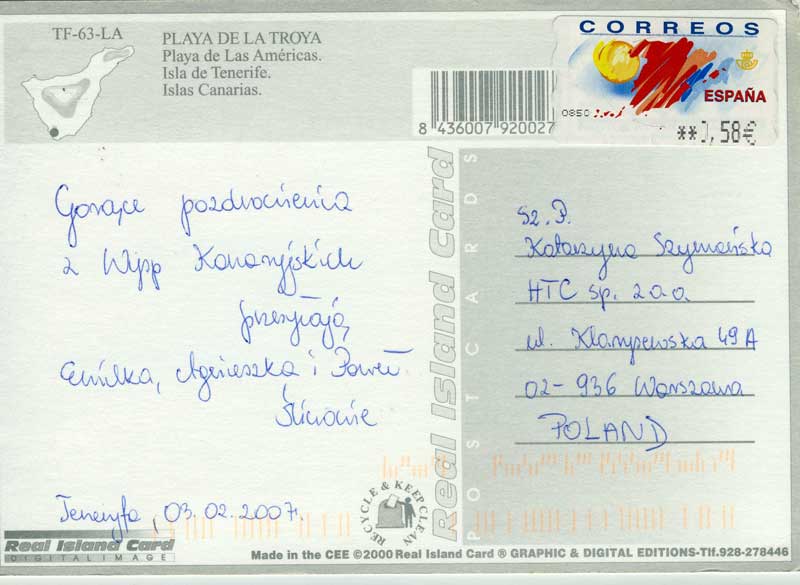 TF-63-LA
PLAYA DE LA TROYA
Playa de Las Américas.
Isla de Tenerife.
Islas Canarias.
CORREOS
ESPAÑA
0850
**0,58€
8 436007 920027
Gorące pozdrowienia
z Wysp Kanaryjskich
przesyłają
Emilka, Agnieszka i Paweł
Teneryfa, 03.02.2007r.
Sz. P.
Katarzyna Szymańska
HTC sp. z o.o
ul. Kłaryszewska 49A
02-936 Warszawa
POLAND
Real Island Card
POSTCARDS
RECYCLE & KEEP CLEAN
Real Island Card
DIGITAL IMAGE
Made in the CEE ©2000 Real Island Card ® GRAPHIC & DIGITAL EDITIONS-Tlf.928-278446